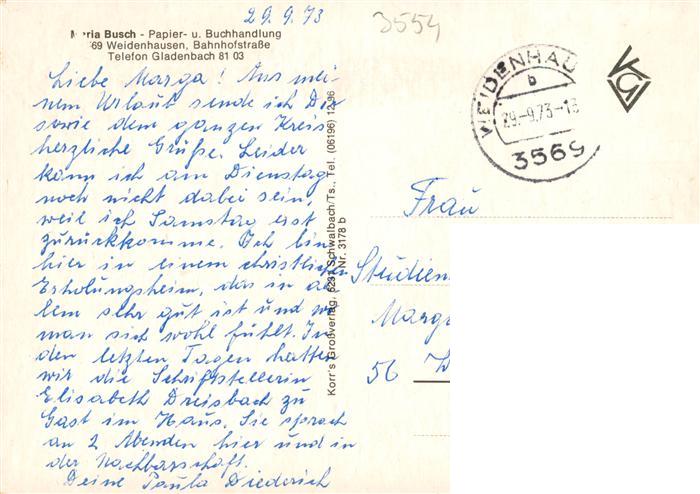 29.9.73
3554
Maria Busch - Papier- u. Buchhandlung
69 Weidenhausen, Bahnhofstraße
Telefon Gladenbach 81 03
Liebe Marga! Aus mei-
nem Urlaub sende ich Dir
sowie dem ganzen Kreis
herzliche Grüße. Leider
kann ich am Dienstag
noch nicht dabei sein,
weil ich Samstag erst
zurückkomme. Ich bin
hier in einem christlichen
Erholungsheim, das in al-
lem sehr gut ist und wo
man sich wohl fühlt. In
den letzten Tagen hatten
wir die Schriftstellerin
Elisabeth Dreisbach zu
Gast im Haus. Sie sprach
an 2 Abenden hier und in
der Nachbarschaft.
Deine Paula Diederich
Korr's Großverlag, 6231 Schwalbach/Ts., Tel. (06196) 12 96
Nr. 3178 b
WEIDENHAU
b
29.-9.73-18
3569
KGV
Frau
Studien
Marg
56 W